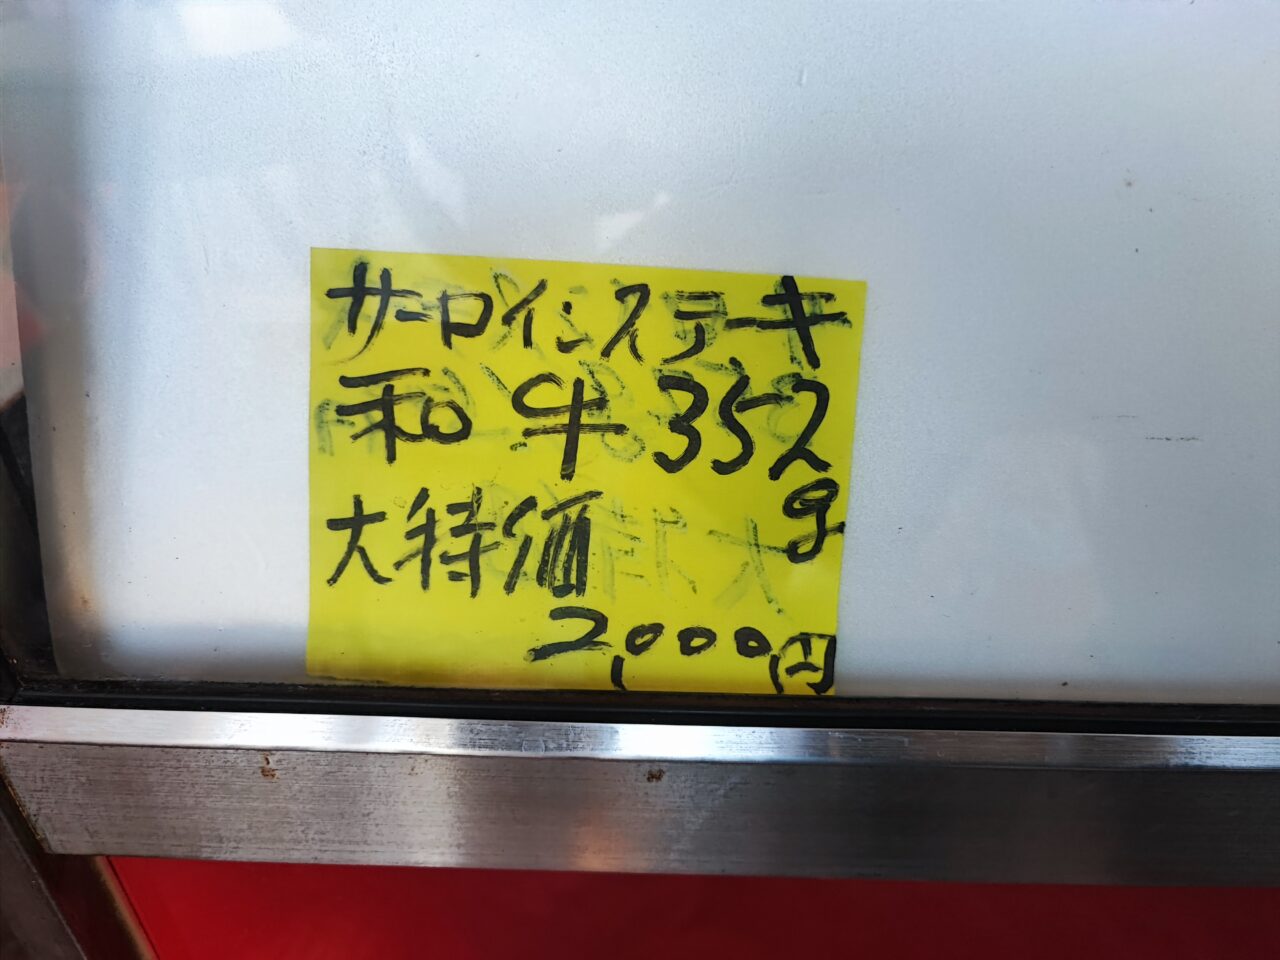 サーロインステーキ
和牛352g
大特価
2,000円